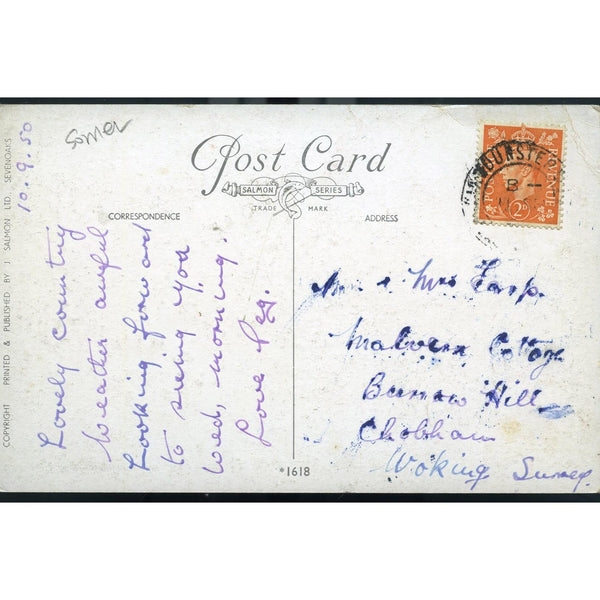 Somer
Post Card
SALMON SERIES
TRADE MARK
CORRESPONDENCE
ADDRESS
10.9.50
Lovely country
Weather awful
Looking forward
to seeing you
Wed, morning.
Love Peg.
& Mrs
Malvern Cottage
Burrow Hill
Chobham
Woking Surrey
*1618
COPYRIGHT PRINTED & PUBLISHED BY J. SALMON LTD. SEVENOAKS
POSTAGE REVENUE
2D